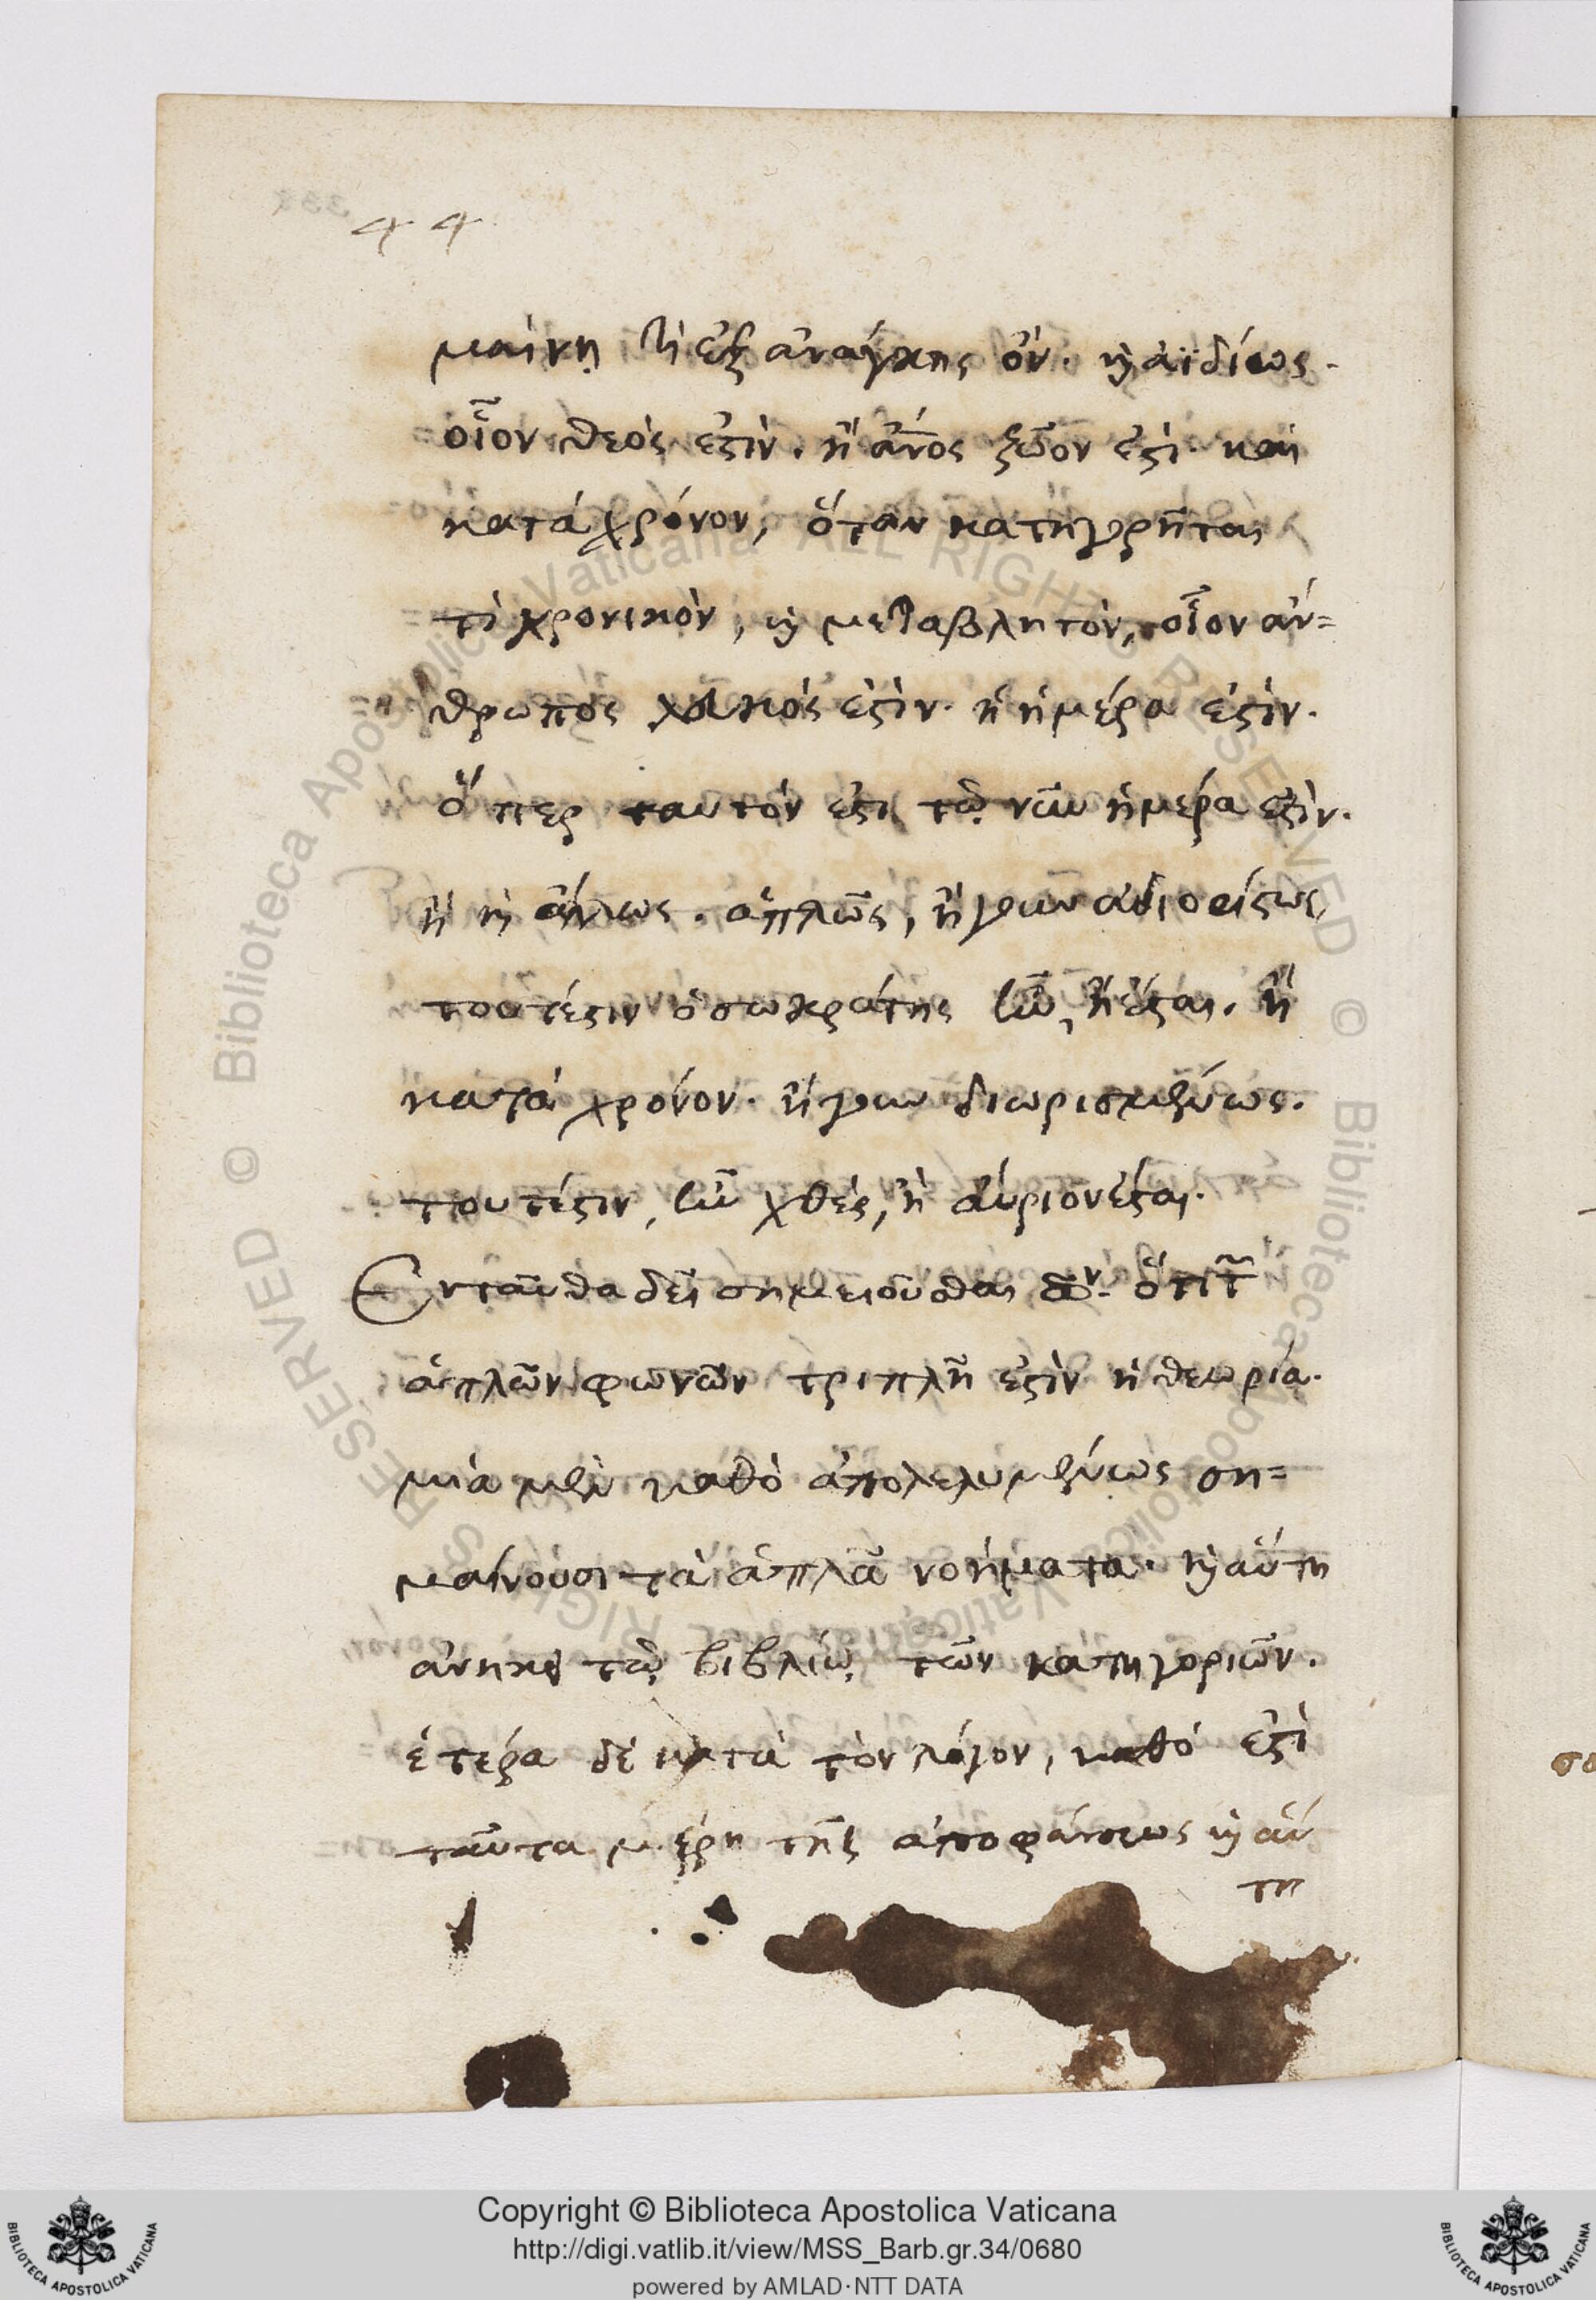 44
μαίνῃ τὶ ἐξ ἀνάγκης ὂν. καὶ ἀϊδίως.
οἷον θεός ἐστὶν. ἢ ἄνος ζῶον ἐστὶ. καὶ
κατὰ χρόνον, ὅταν κατηγορῆται
τὶ χρονικὸν, καὶ μεταβλητὸν, οἷον ἄν=
θρωπός λευκός ἐστὶν. ἢ ἡμέρα ἐστὶν.
ὅπερ ταυτόν ἐστι τῷ νῦν ἡμέρα ἐστὶν.
ἢ καὶ ἄλλως. ἁπλῶς, ἤγουν ἀδιορίστως
τουτέστιν ὁ σωκράτης ἦν, ἢ ἔσται. ἢ
κατὰ χρόνον. ἤγουν διωρισμένως.
τουτέστιν, ἦν χθές, ἢ αὔριον ἔσται.
Ενταῦθα δεῖ σημειοῦσθαι ὅτι τ
ἁπλῶν φωνῶν τριπλῆ ἐστὶν ἡ θεωρία.
μία μὲν καθὸ ἀπολελυμένως ση=
μαίνουσι τὰ ἁπλᾶ νοήματα. καὶ αὕτη
ἀνήκει τῷ βιβλίῳ τῶν κατηγοριῶν.
ἑτέρα δὲ κατὰ τὸν λόγον, καθό ἐστὶ
ταῦτα μέρη τῆς ἀποφάνσεως καὶ αὕ
τη
Copyright © Biblioteca Apostolica Vaticana
http://digi.vatlib.it/view/MSS_Barb.gr.34/0680
powered by AMLAD·NTT DATA